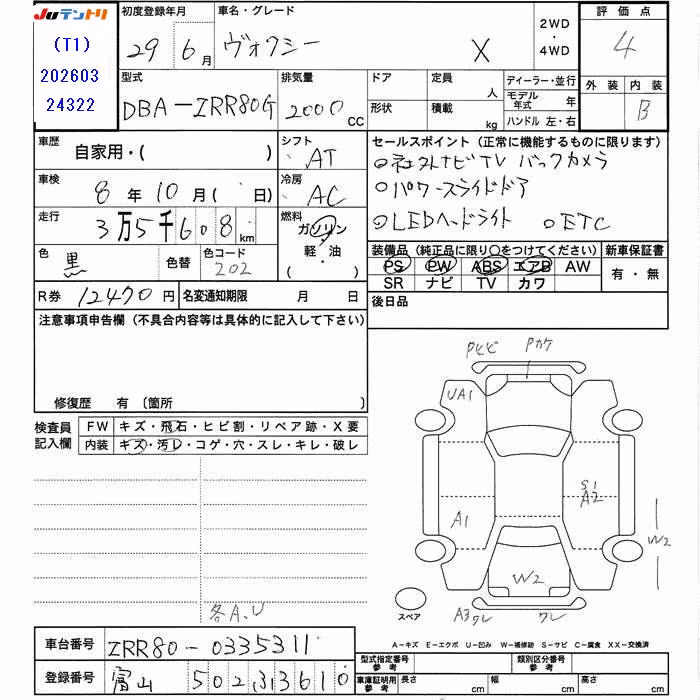 JUテントリ
(T1)
202603
24322
初度登録年月
29 6月
車名・グレード
ヴォクシー X
2WD
・
4WD
評価点
4
外装 内装
B
型式
DBA-ZRR80G
排気量
2000 CC
ドア
形状
定員 人
積載 kg
ディーラー・並行
モデル年式 年
ハンドル 左・右
車歴
自家用・( )
シフト
AT
セールスポイント (正常に機能するものに限ります)
○社外ナビTV バックカメラ
○パワースライドドア
○LEDヘッドライト ○ETC
車検
8年10月( 日)
冷房
AC
走行
3万5千608km
燃料
ガソリン
・
軽・油
( )
色
黒
色替
色コード
202
装備品 (純正品に限り○をつけてください)
PS PW ABS エアB AW
SR ナビ TV カワ
新車保証書
有・無
R券 12470円
名変通知期限 月 日
後日品
注意事項申告欄 (不具合内容等は具体的に記入して下さい)
修復歴 有 〔箇所 〕
検査員
記入欄
FW キズ・飛石・ヒビ割・リペア跡・X要
内装 キズ・汚レ・コゲ・穴・スレ・キレ・破レ
各A、U
Pヒビ Pカケ
UA1
S1
A2
A1
W2
W2
スペア
A3ワレ ワレ
A-キズ E-エクボ U-凹み W-補修跡 S-サビ C-腐食 XX-交換済
車台番号
ZRR80-0335311
登録番号
富山 502 3610
型式指定番号
参考
類別区分番号
参考
車庫証明用
参考
長さ cm
幅 cm
高さ cm